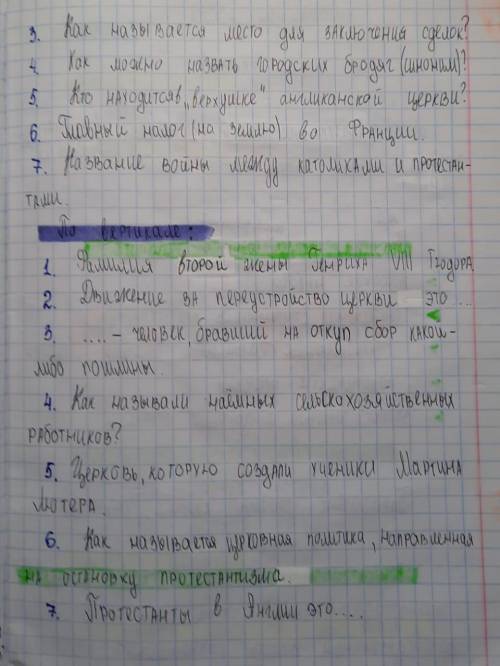 3. Как называется место для заключения сделок?
4. Как можно назвать городских бродяг (синоним)?
5. Кто находится в „верхушке" англиканской церкви?
6. Главный налог (на землю) во Франции.
7. Название войны между католиками и протестан-
тами.
По вертикале:
1. Фамилия второй жены Генриха VIII Тюдора
2. Движение за переустройство церкви это ...
3. .... - человек, бравший на откуп сбор какой-
либо пошлины.
4. Как называли наёмных сельскохозяйственных
работников?
5. Церковь, которую создали ученики Мартина
Лютера.
6. Как называется церковная политика, направленная
на остановку протестантизма.
7. Протестанты в Англии это....